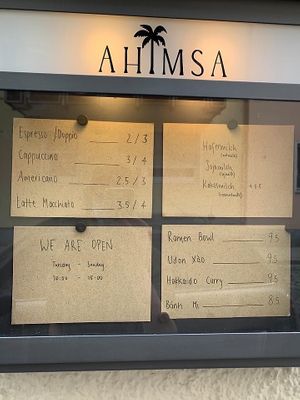 AHIMSA
Espresso/Doppio 2/3
Cappuccino 3/4
Americano 2.5/3
Latte Macchiato 3.5/4
Hafermilch
Sojamilch
Kokosmilch + 0.5
WE ARE OPEN
Tuesday - Sunday
10:00 - 15:00
Ramen Bowl 9.5
Udon Xào 9.5
Hokkaido Curry 9.5
Bánh Mì 8.5